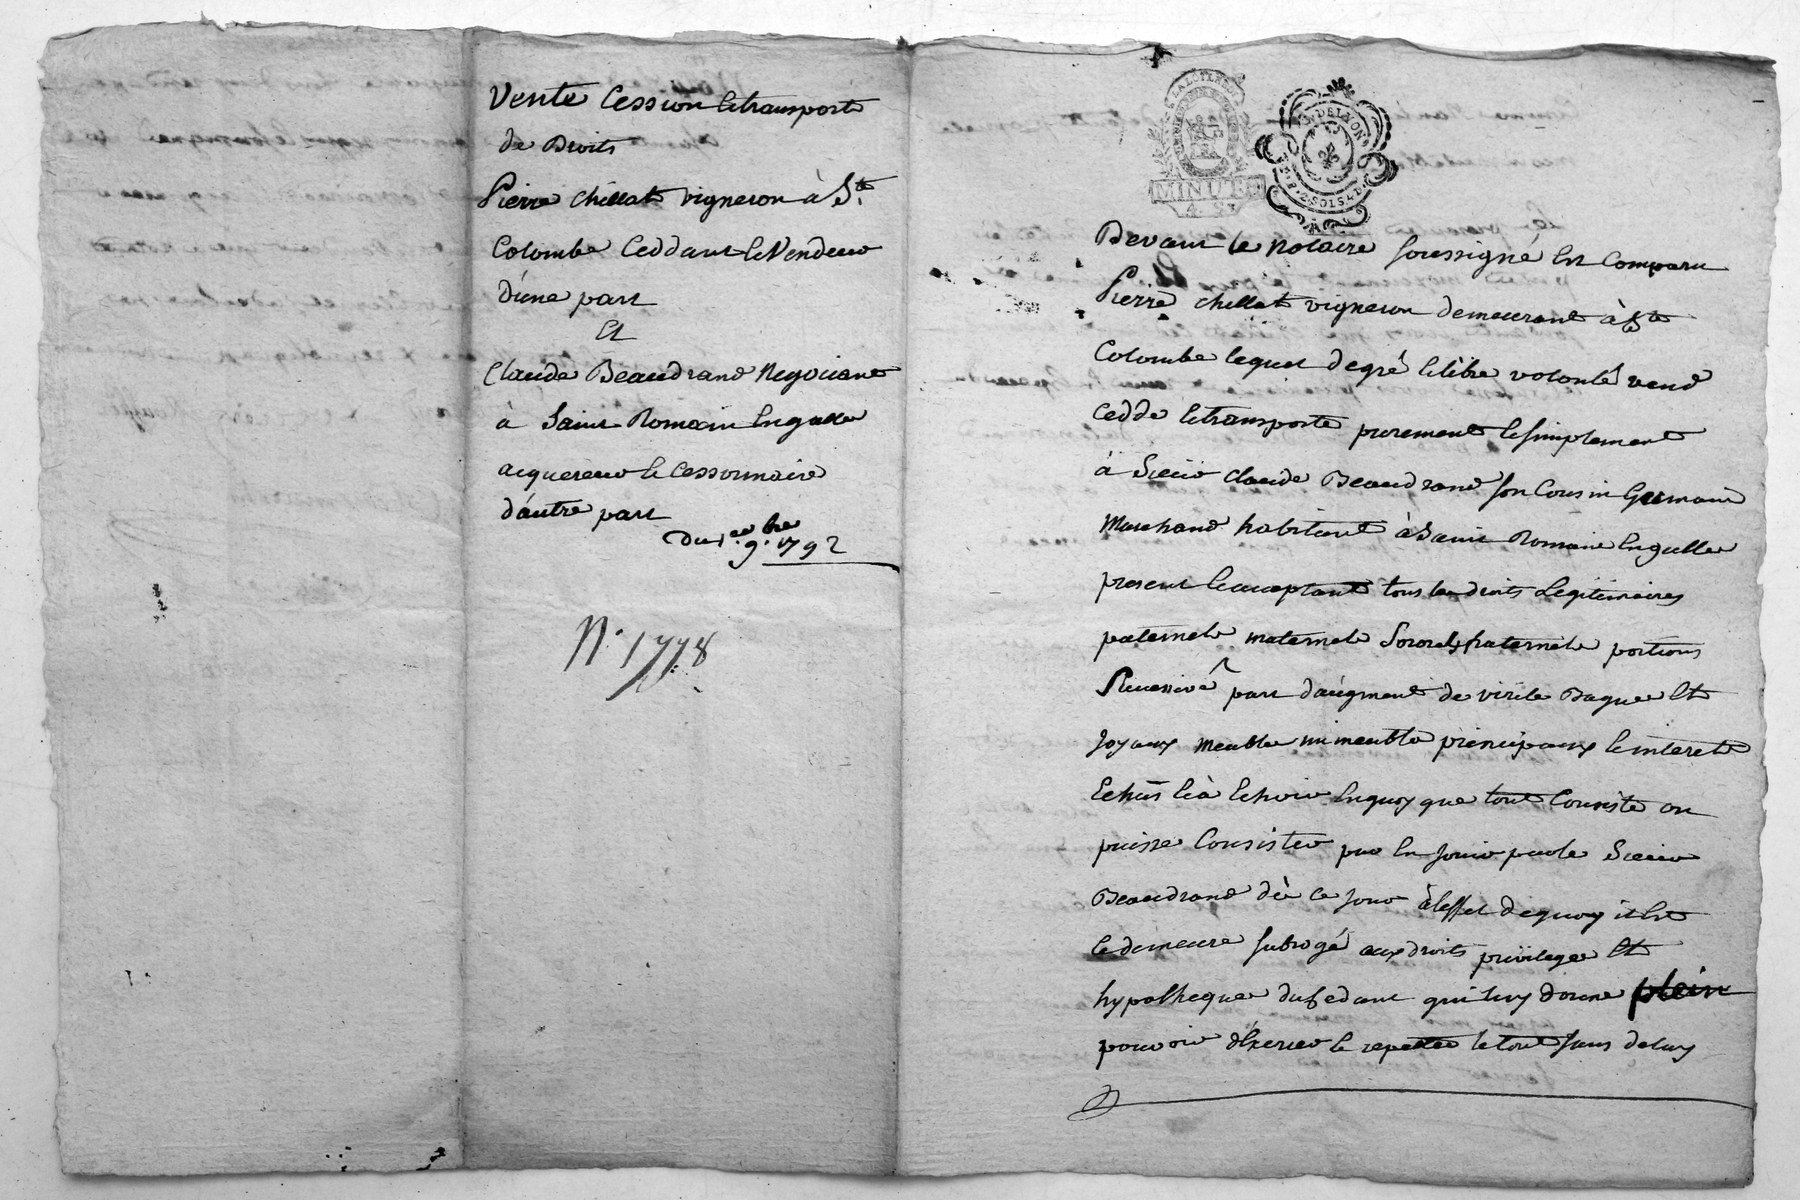 Vente Cession Et transport
de Droits
Pierre Chillat vigneron à Ste.
Colombe Ceddant Et Vendeur
D'une part
Et
Claude Beaudrand Negociant
à Saint Romain Engalle
acquereur Et Cessonnaire
d'autre part
Du 1er 9.bre 1792
N.° 1778
MINUTE
4 S
2 SOLS 4 D
Devant Le Notaire Soussigné Est Comparu
Pierre Chillat vigneron demeurant à Ste
Colombe lequel de gré Et libre volonté vend
Cedde Et transporte purement Et Simplement
à Sieur Claude Beaudrand Son Cousin Germain
Marchand habitant à Saint Romain Engalle
present Et acceptant tous Les droits Légitimaires
paternels maternels Sororels fraternels portions
part d'augment de virile Bague Et
Joyaux Meubles immeubles principaux Et interets
Echus Et à Echoir En quoy que tout Consiste ou
puisse Consister pour En Jouir par le Sieur
Beaudrand dès Ce Jour à L'effet de quoy il Est
Et demeure Subrogé aux droits privileges Et
hypotheques du Cedant qui luy donne plein
pouvoir d'Exercer Et repetter Le tout Sans delay